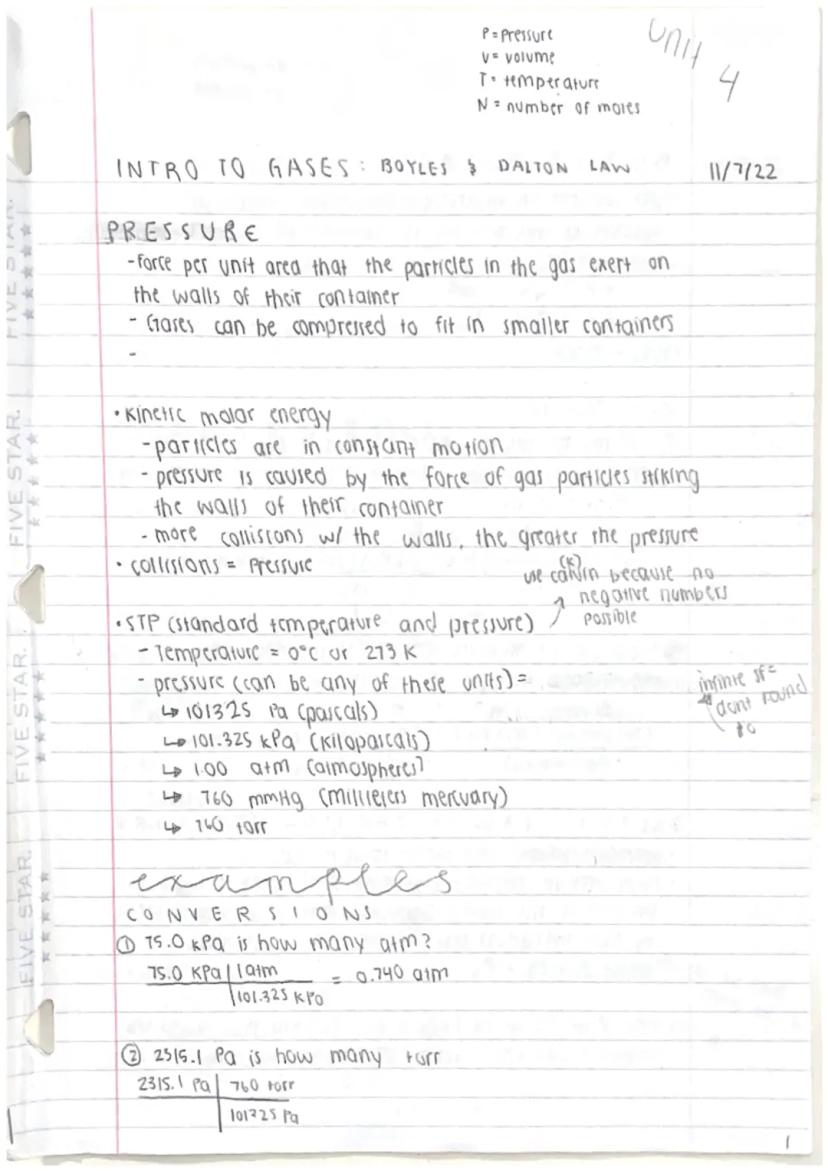 P = Pressure
V = volume
T = temperature
N = number of moles
Unit 4
INTRO TO GASES: BOYLES & DALTON LAW 11/7/22
PRESSURE
-force per unit area that the particles in the gas exert on
the walls of their container
- Gases can be compressed to fit in smaller containers
-
• Kinetic molar energy
- particles are in constant motion
- pressure is caused by the force of gas particles striking
the walls of their container
- more collisions w/ the walls, the greater the pressure
• collisions = Pressure
(K)
use because no
negative numbers
possible
• STP (standard temperature and pressure) ↗
- Temperature = 0°C or 273 K
- pressure (can be any of these units) =
↳ 101325 Pa (pascals)
↳ 101.325 kPa (kilopascals)
↳ 1.00 atm (atmospheres)
↳ 760 mmHg (millileters mercuary)
↳ 760 torr
infinite sf =
dont round
to
examples
CONVERSIONS
① 75.0 kPa is how many atm?
75.0 kPa | 1 atm = 0.740 atm
101.325 kPa
② 2315.1 Pa is how many torr
2315.1 Pa | 760 torr
101325 Pa
1
FIVE STAR.
FIVE STAR.
FIVE STAR.
FIVE STAR.